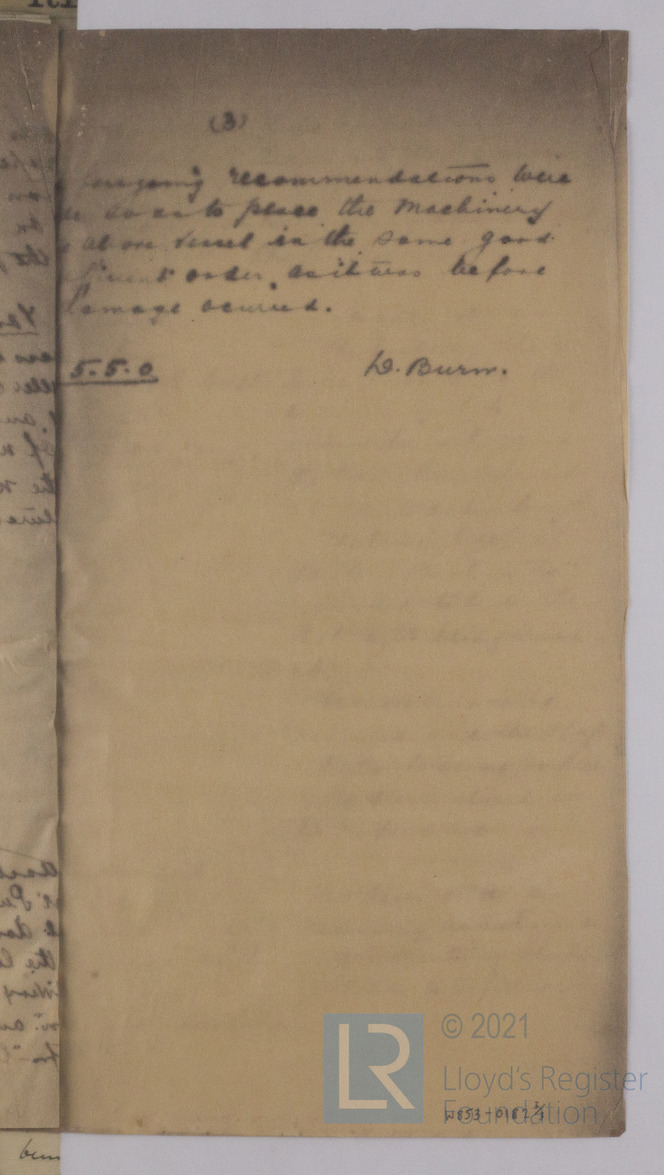 (3)
foregoing recommendations were
so as to place the Machinery
above Vessel in the same good
order, as it was before
damage ocurred.
5.5.0
D. Burn.
© 2021
LR
Lloyd's Register
Foundation